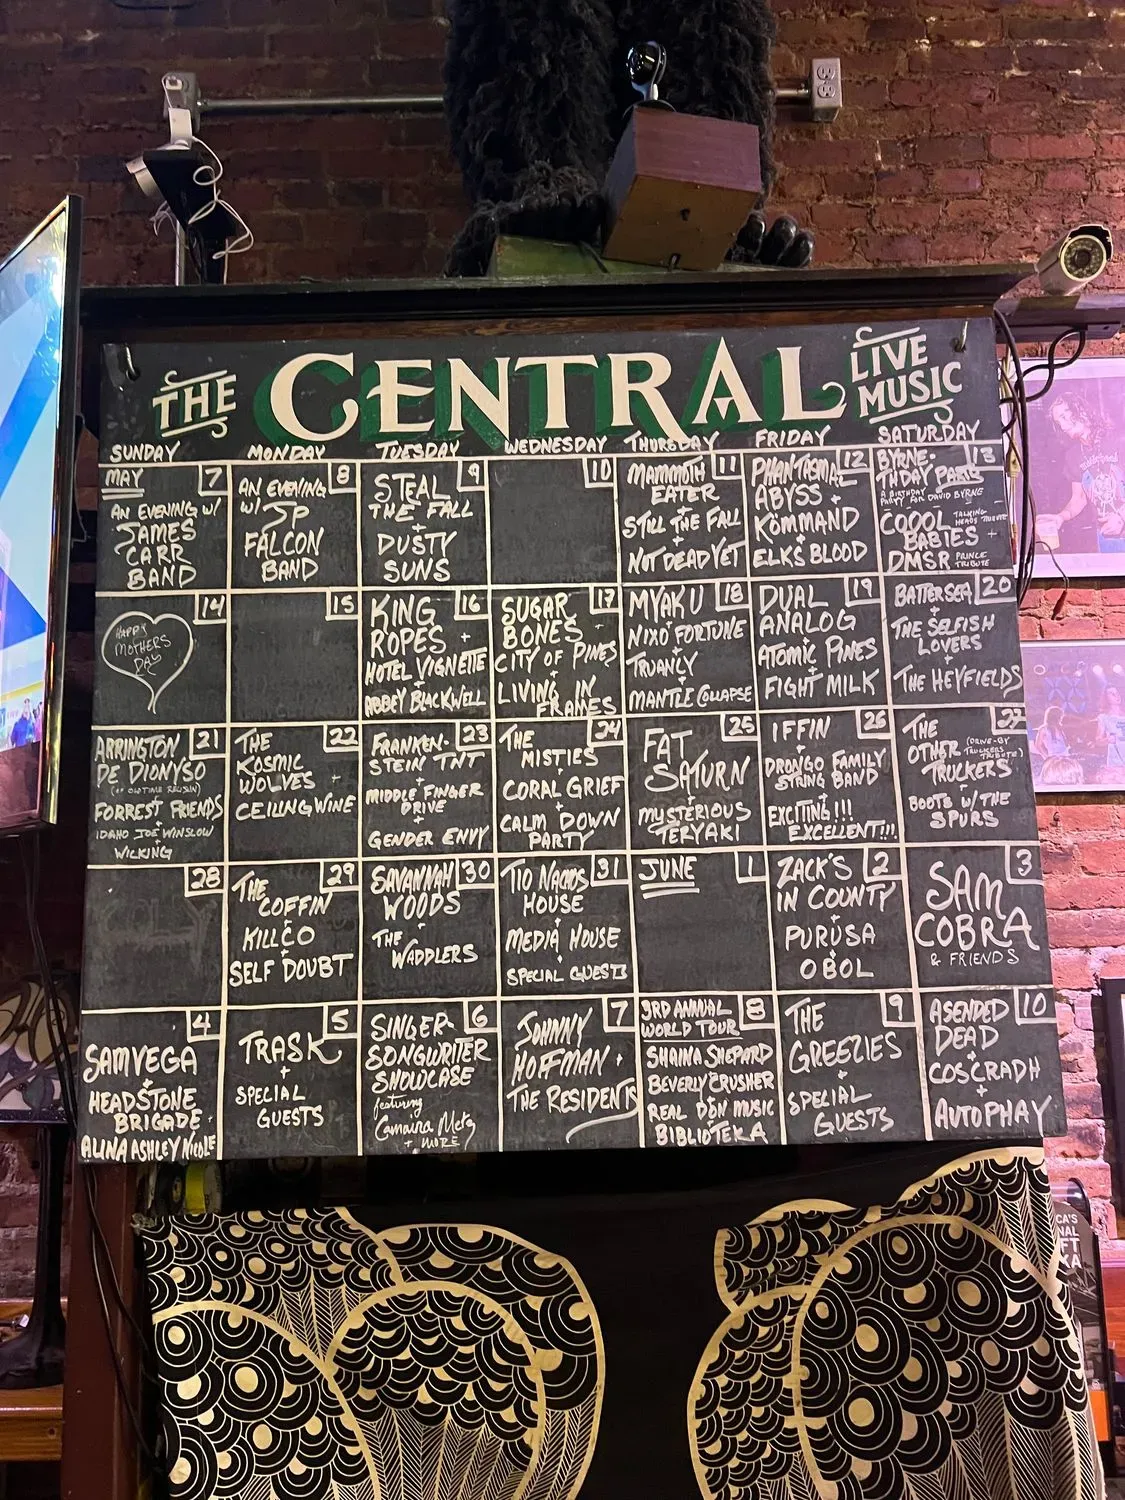 THE CENTRAL LIVE MUSIC
SUNDAY MONDAY TUESDAY WEDNESDAY THURSDAY FRIDAY SATURDAY
MAY 7
AN EVENING W/
JAMES
CARR
BAND
8
AN EVENING
W/ JP
FALCON
BAND
9
STEAL
THE FALL
+
DUSTY
SUNS
10
11
MAMMOTH
EATER
+
STILL THE FALL
+
NOT DEAD YET
12
PHANTASMAL
ABYSS +
KOMMAND
+
ELKS BLOOD
13
BYRNE-
THDAY PARTS
A BIRTHDAY
PARTY FOR DAVID BYRNE
COOOL TALKING
BABIES HEADS TRIBUTE
+
DMSR PRINCE
TRIBUTE
14
HAPPY
MOTHERS
DAY
15
16
KING
ROPES +
HOTEL VIGNETTE
+
ABBEY BLACKWELL
17
SUGAR
BONES +
CITY OF PINES
+
LIVING IN
FRAMES
18
MYAKU
+
NIXO FORTUNE
+
TRUANCY
+
MANTLE COLLAPSE
19
DUAL
ANALOG
+
ATOMIC PINES
+
FIGHT MILK
20
BATTERSEA
+
THE SELFISH
LOVERS
+
THE HEYFIELDS
21
ARRINGTON
DE DIONYSO
(OF OLD TIME RELIJUN)
+
FORREST FRIENDS
+
IDAHO JOE WINSLOW
+
WILKING
22
THE
KOSMIC
WOLVES +
CEILING WINE
23
FRANKEN-
STEIN TNT
+
MIDDLE FINGER
DRIVE
+
GENDER ENVY
24
THE
MISTIES
+
CORAL GRIEF
+
CALM DOWN
PARTY
25
FAT
SATURN
+
MYSTERIOUS
TERYAKI
26
IFFIN
+
DRONGO FAMILY
STRING BAND
EXCITING!!!
EXCELLENT!!!
27
THE
OTHER (DRIVE-BY
TRUCKERS TRUCKERS TRIBUTE)
+
BOOTS W/ THE
SPURS
28
29
THE
COFFIN
+
KILLCO
+
SELF DOUBT
30
SAVANNAH
WOODS
+
THE
WADDLERS
31
TIO NACHOS
HOUSE
+
MEDIA HOUSE
+
SPECIAL GUESTS
JUNE 1
2
ZACK'S
IN COUNTY
+
PURUSA
+
OBOL
3
SAM
COBRA
& FRIENDS
4
SAMVEGA
+
HEADSTONE
BRIGADE +
ALINA ASHLEY NICOLE
5
TRASK
+
SPECIAL
GUESTS
6
SINGER-
SONGWRITER
SHOWCASE
featuring
+ MORE
7
JOHNNY
HOFFMAN +
THE RESIDENTS
8
3RD ANNUAL
WORLD TOUR
SHAINA SHEPARD
BEVERLY CRUSHER
REAL DON MUSIC
BIBLIOTEKA
9
THE
GREEZIES
+
SPECIAL
GUESTS
10
ASENDED
DEAD
+
COSCRADH
+
AUTOPHAGY